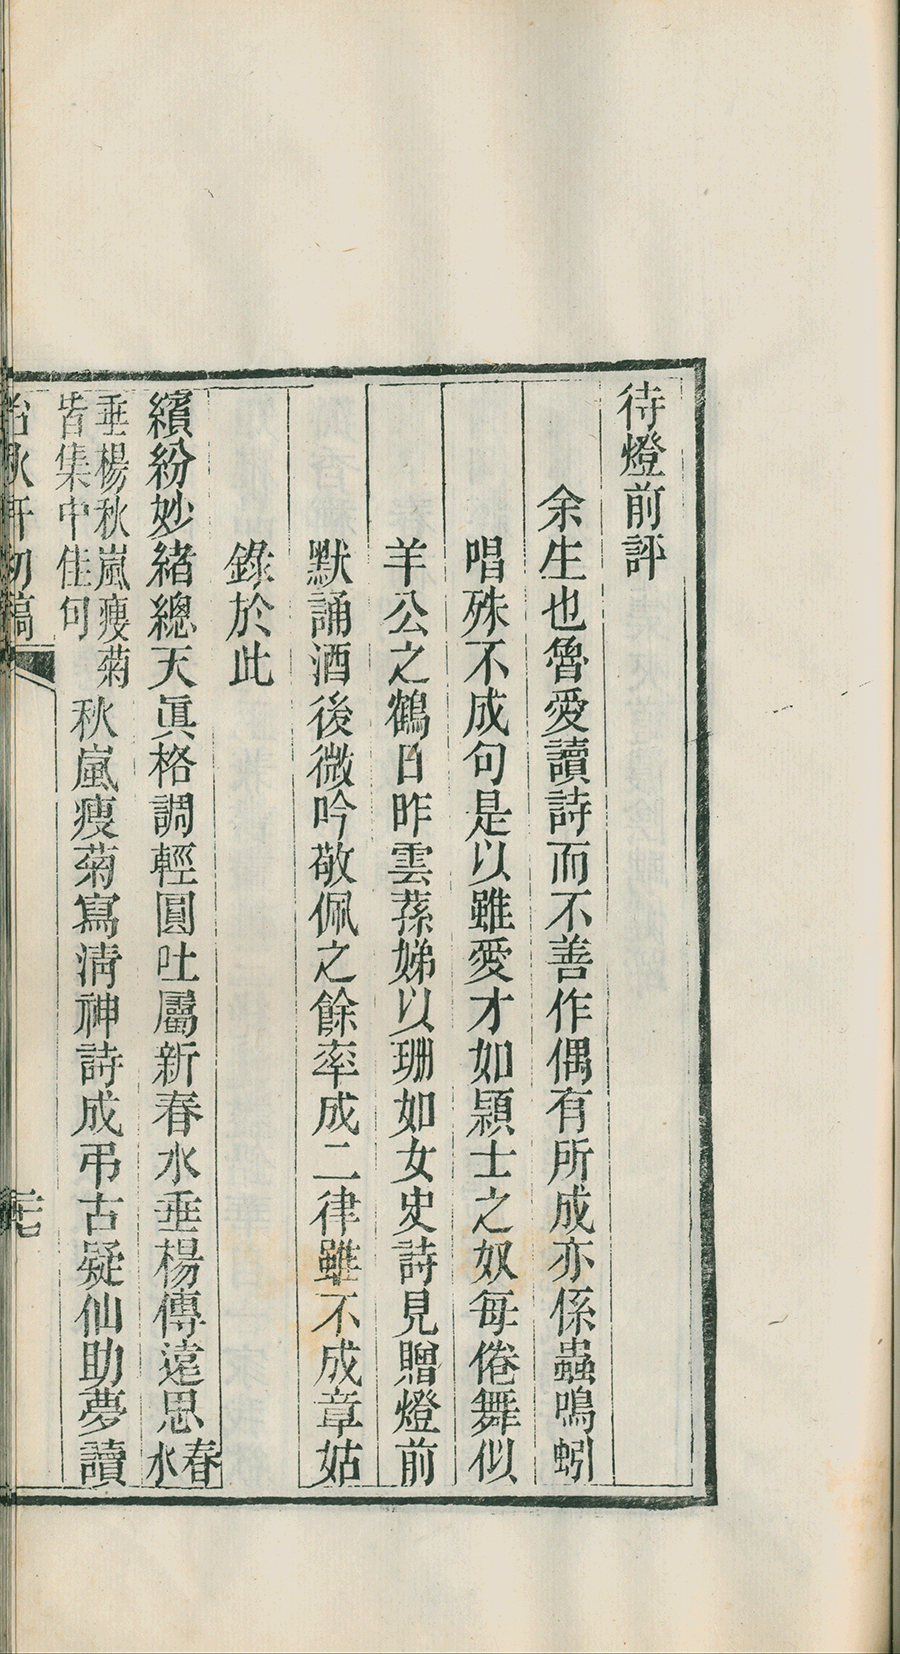 待燈前評
余生也魯愛讀詩而不善作偶有所成亦係蟲鳴蚓
唱殊不成句是以雖愛才如穎士之奴每倦舞似
羊公之鶴日昨雲蓀娣以珊如女史詩見贈燈前
默誦酒後微吟敬佩之餘率成二律雖不成章姑
錄於此
繽紛妙緒總天眞格調輕圓吐屬新春水垂楊傳遠思春水
垂楊秋嵐瘦菊
皆集中佳句
秋嵐瘦菊寫淸神詩成弔古疑仙助夢讀
秋軒初稿